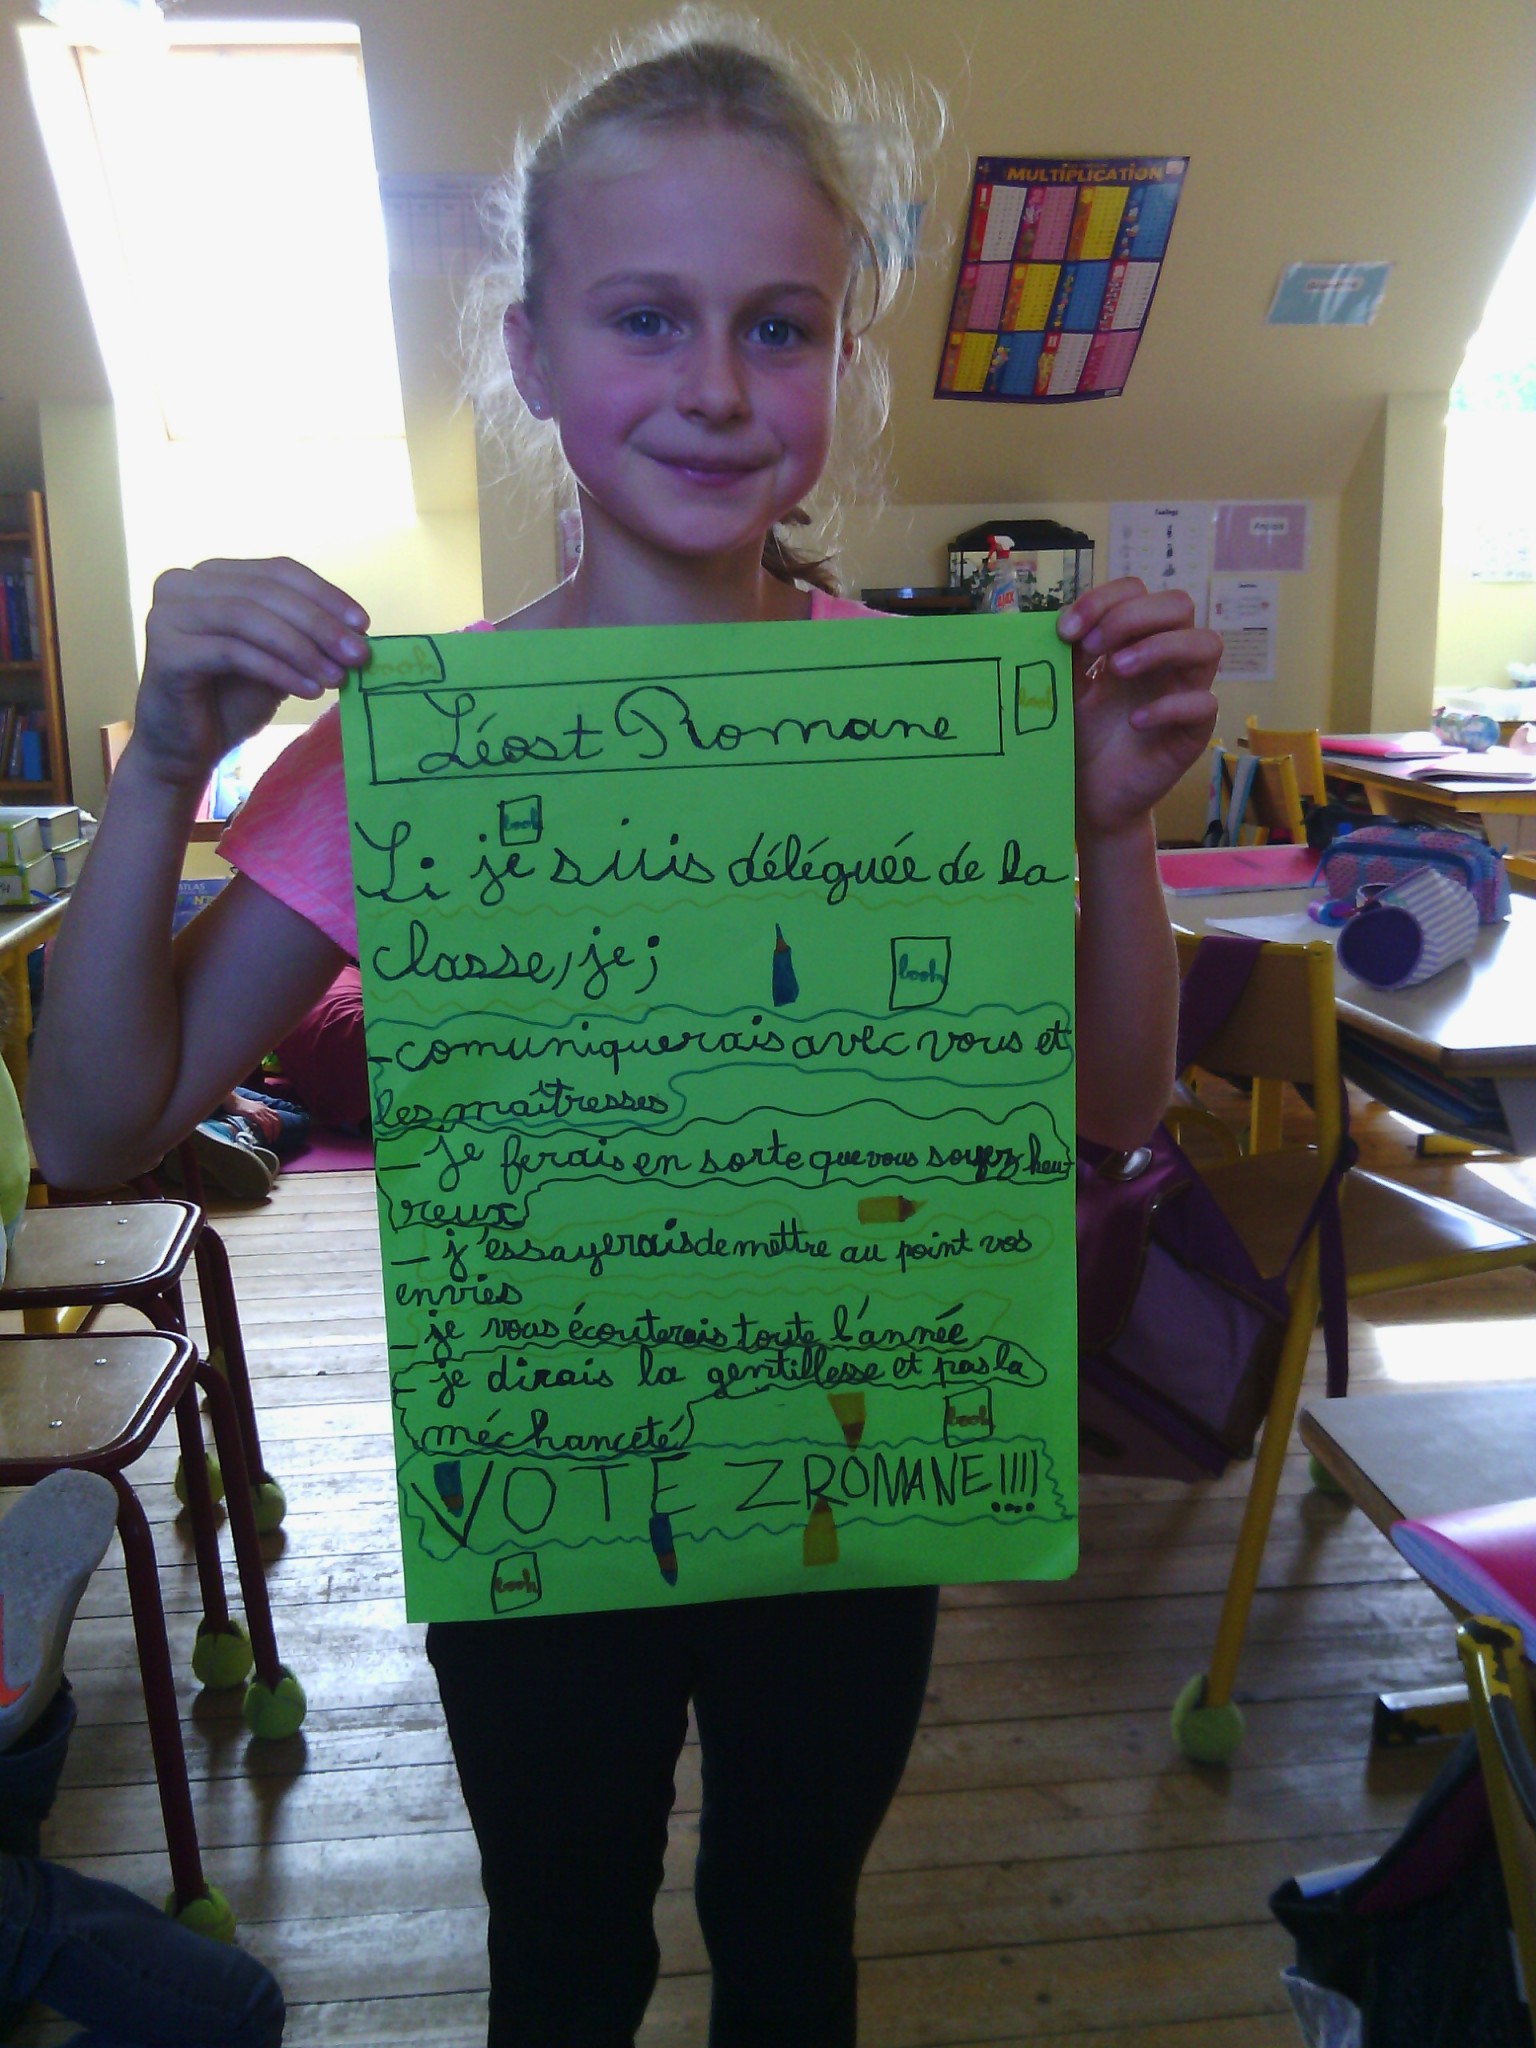 MULTIPLICATION
AJAX
ATLAS
book
book
Léost Romane
book
Si je suis déléguée de la
classe, je;
book
-comuniquerais avec vous et
les maîtresses
- je ferais en sorte que vous soyez heu-
reux
- j'essayerais de mettre au point vos
envies
- je vous écouterais toute l'année
- je dirais la gentillesse et pas la
méchanceté
book
VOTE Z ROMANE!!!!
book